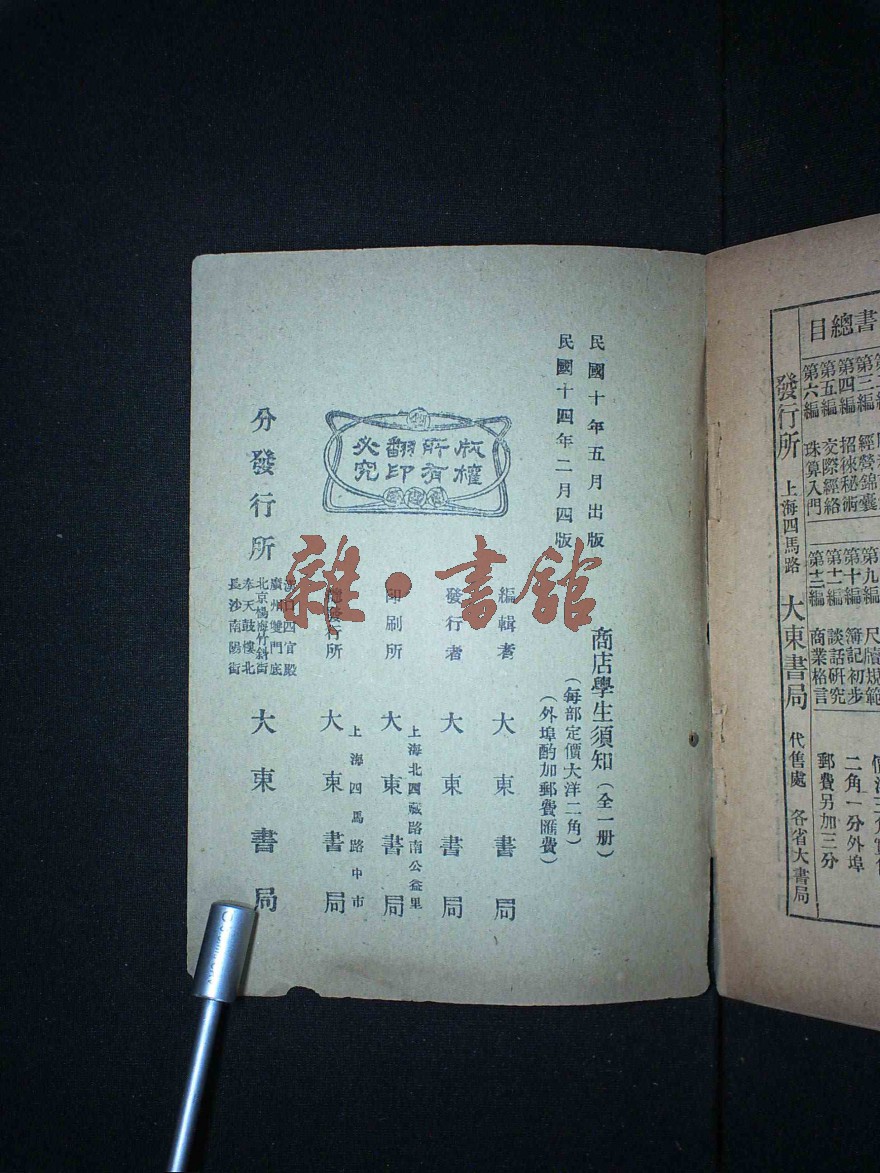 目總書
第三編 經營錦囊
第四編 招徠秘術
第五編 交際經絡
第六編 珠算入門
第九編 尺牘規範
第十編 簿記初步
第十一編 談話研究
第十二編 商業格言
二角一分外埠
郵費另加三分
發行所 上海四馬路 大東書局 代售處 各省大書局
民國十年五月出版
民國十四年二月四版
商店學生須知（全一册）
（每部定價大洋二角）
（外埠酌加郵費匯費）
版權所有翻印必究
編輯者 大東書局
發行者 大東書局
印刷所 上海北西藏路南公益里 大東書局
總發行所 上海四馬路中市 大東書局
分發行所
漢口四官殿
廣州雙門底
北京楊梅竹斜街
奉天鼓樓北
長沙南陽街
大東書局
雜·書館